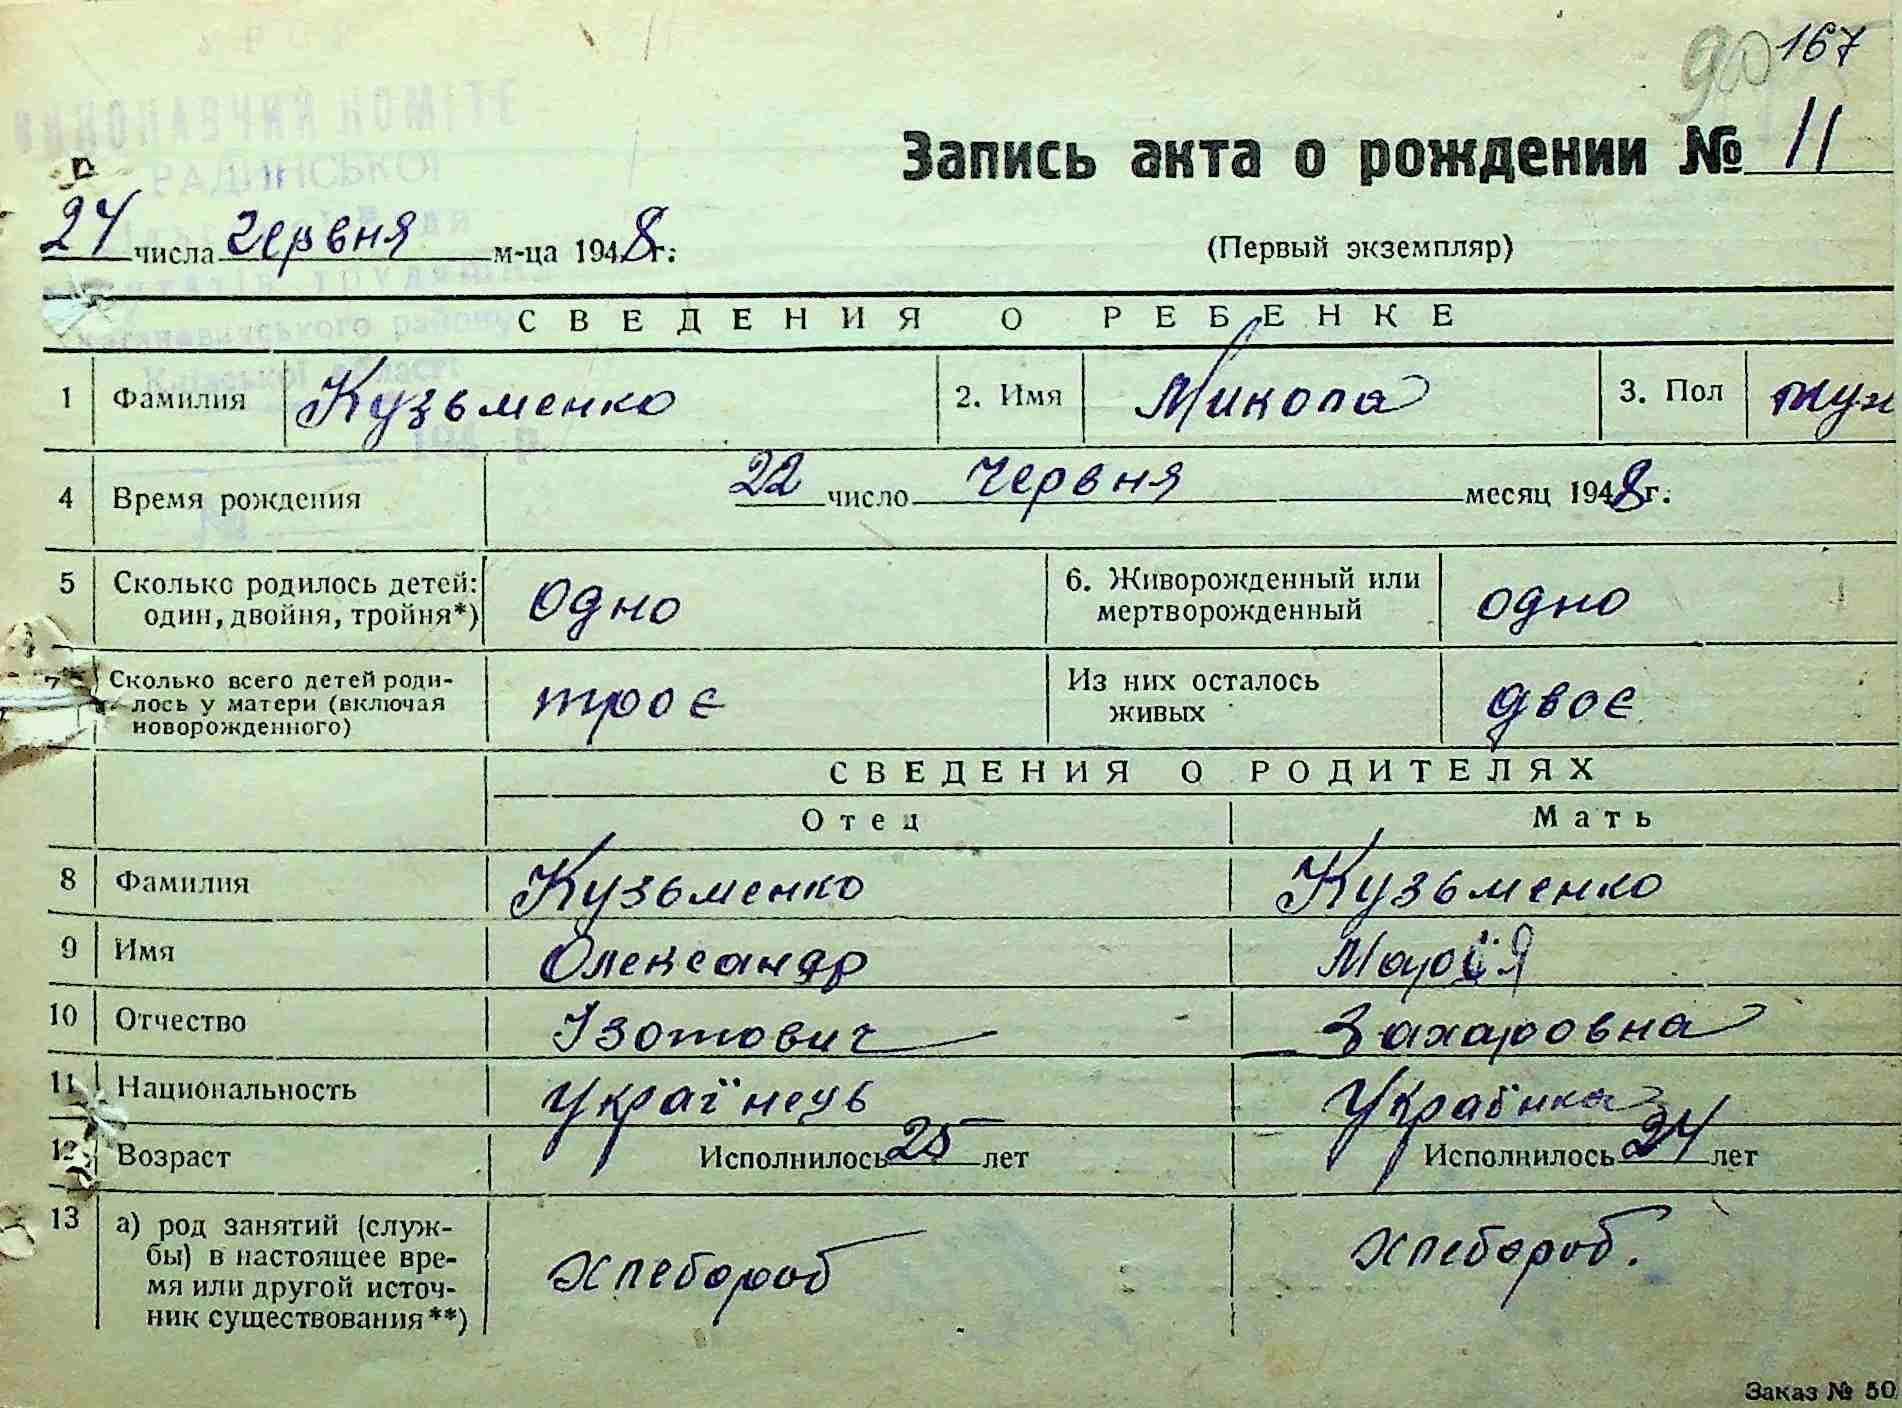 167
90
ВИКОНАВЧИЙ КОМІТЕ
РАДИНСЬКОЇ
Запись акта о рождении № 11
24 числа Червня м-ца 1948 г.
(Первый экземпляр)
СВЕДЕНИЯ О РЕБЕНКЕ
району
Київської області
1 Фамилия Кузьменко 2. Имя Микола 3. Пол муж
194 р.
4 Время рождения 22 число Червня месяц 1948 г.
№
5 Сколько родилось детей: Одно 6. Живорожденный или одно
один, двойня, тройня*) мертворожденный
7 Сколько всего детей роди- троє Из них осталось двоє
лось у матери (включая живых
новорожденного)
СВЕДЕНИЯ О РОДИТЕЛЯХ
Отец Мать
8 Фамилия Кузьменко Кузьменко
9 Имя Олександр Марія
10 Отчество Ізотович Захаровна
11 Национальность Українець Українка
12 Возраст Исполнилось 25 лет Исполнилось 24 лет
13 а) род занятий (служ- хлебороб хлебороб.
бы) в настоящее вре-
мя или другой источ-
ник существования**)
Заказ № 50